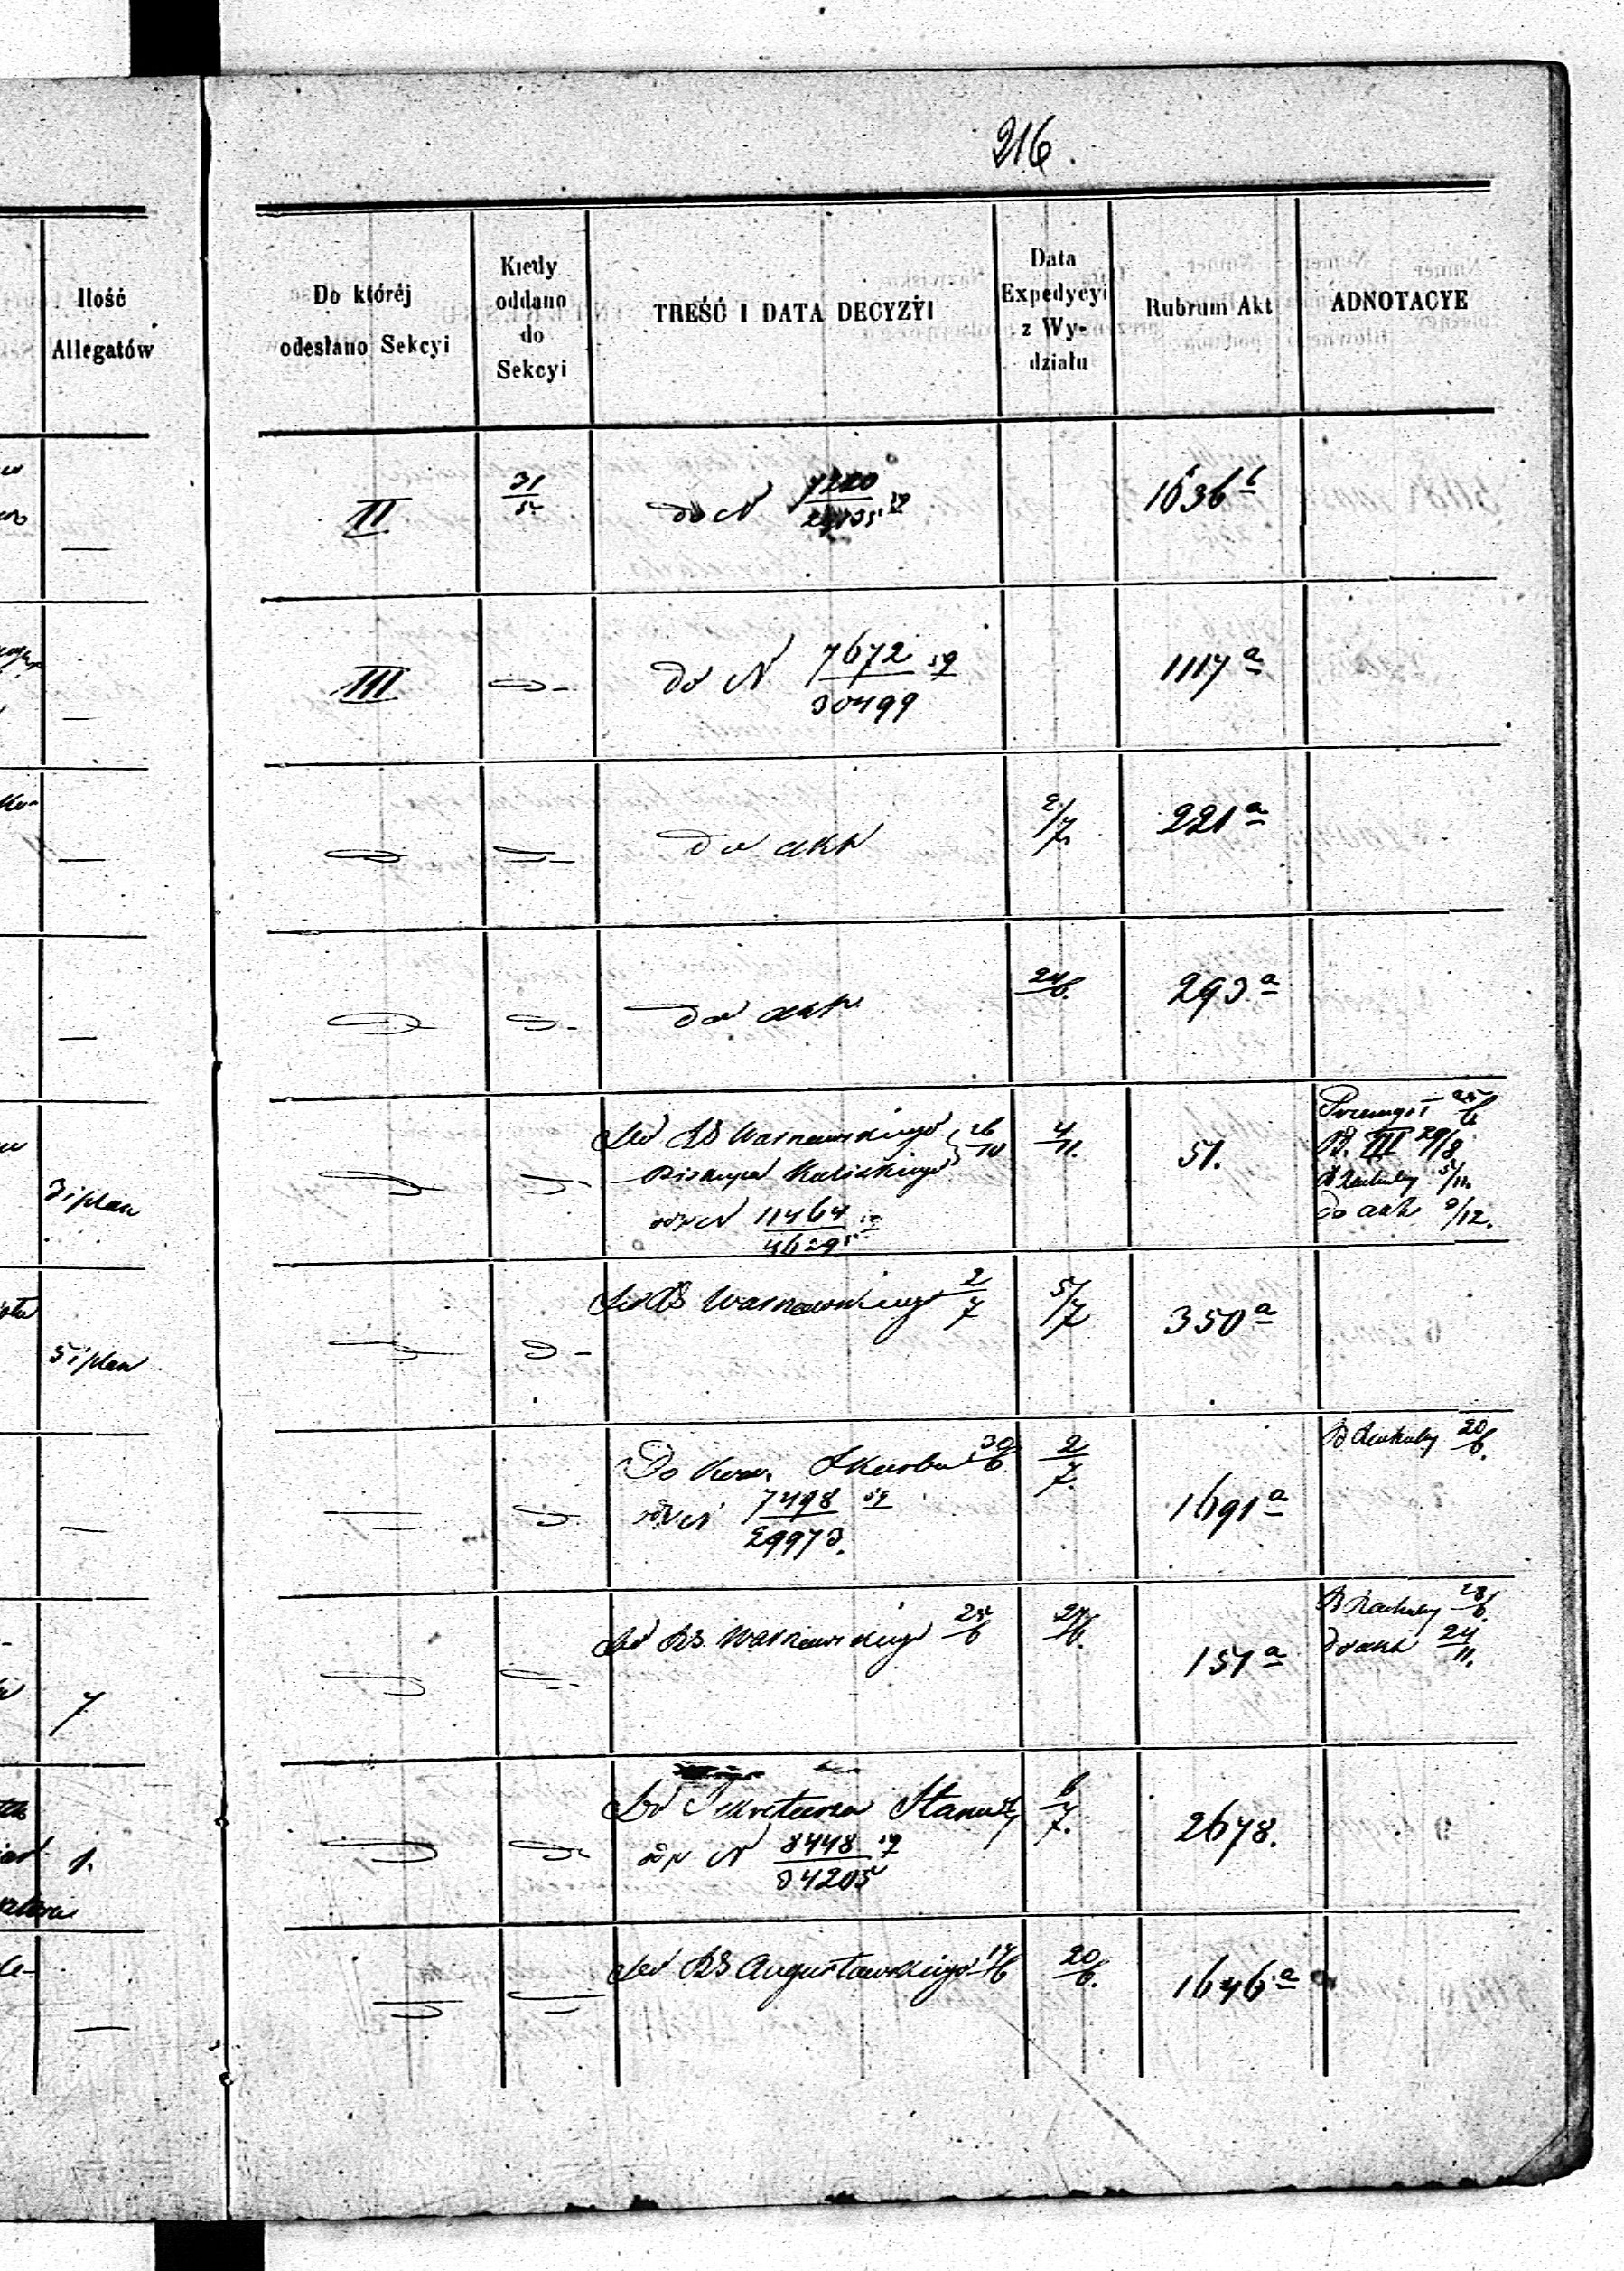 216.
Ilość
Allegatów
Do któréj
odesłano Sekcyi
Kiedy
oddano
do
Sekcyi
TREŚĆ I DATA DECYZYI
Data
Expedycyi
z Wy-
działu
Rubrum Akt
ADNOTACYE
II
31/5
do N 7220
1636 b
III
do N 7672/30799 59
1117 a
do akt
2/7
221 a
do akt
24/6.
293 a
3 i plan
Do RG Warszawskiego 26/10
Biskupa Kaliskiego
odp N 11464/46295 59
4/11.
51.
25/6
B. III 29/8
B Rachuby 5/11.
do akt 9/12.
5 i plan
Do RG Warszawskiego 2/7
5/7
350 a
Do Kom. Skarbu 30/6
odp N 7498/29973. 59
2/7.
1691 a
B Rachuby 20/6.
7
Do RG. Warszawskiego 25/6
27/6.
151 a
B Rachuby 28/6.
do akt 24/11.
1.
Do Sekretarza Stanu
odp N 8448/34205 59
6/7.
2678.
Do RG Augustowskiego 17/6
20/6.
1646 a